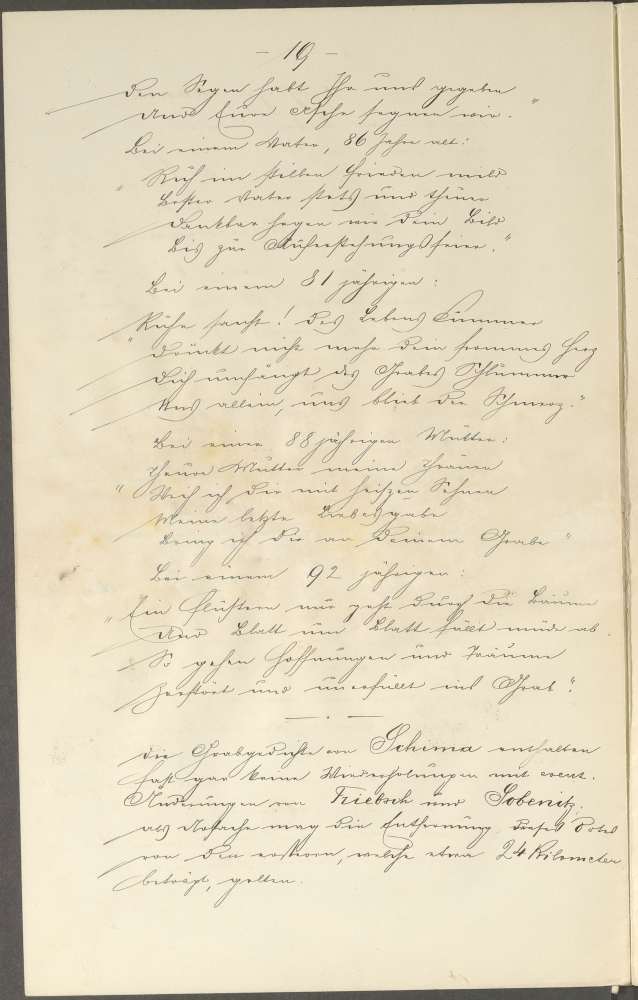 - 19 -
Den Segen habt Ihr uns gegeben
Und Eure Asche segnen wir."
Bei einem Vater, 86 Jahre alt:
"Ruh im stillen Frieden mild
Bester Vater stets uns theuer
Dankbar hegen wir Dein Bild
Bis zur Auferstehungsfeier."
Bei einem 81 jährigen:
"Ruhe sanft! Des Lebens Kummer
Drückt nicht mehr Dein frommes Herz
Dich umfängt des Grabes Schlummer
Uns allein, uns blieb der Schmerz."
Bei einer 88 jährigen Mutter:
"Theure Mutter meine Thränen
Weih ich Dir mit heißem Sehnen
Meine letzte Liebesgabe
Bring ich Dir an Deinem Grabe"
Bei einem 92 jährigen:
"Ein Flüstern nur geht durch die Bäume
Und Blatt um Blatt fällt müde ab
So gehen Hoffnungen und Träume
Zerstört und unerfüllt ins Grab".
Die Grabgedichte von Schima enthalten
fast gar keine Wiederholungen mit event.
Änderungen von Triebsch und Sobenitz,
als Ursache mag die Entfernung dieses Ortes
von den ersteren, welche etwa 24 Kilometer
beträgt, gelten.